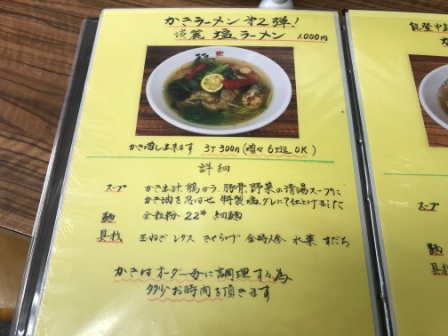 かきラーメン 第2弾!
淡麗 塩ラーメン 1,000円
かき増し出来ます 3ケ 300円(増々 6ケ迄 OK)
詳細
スープ かき出汁 鶏がら、豚骨、野菜の清湯スープに
かき油を忍ばせ 特製 タレにて仕上げました
麺 全粒粉 22# 細麺
具材 玉ねぎ レタス きくらげ 金時人参 水菜 すだち
かきはオーダー毎に調理する為
多少お時間を頂きます
能登中